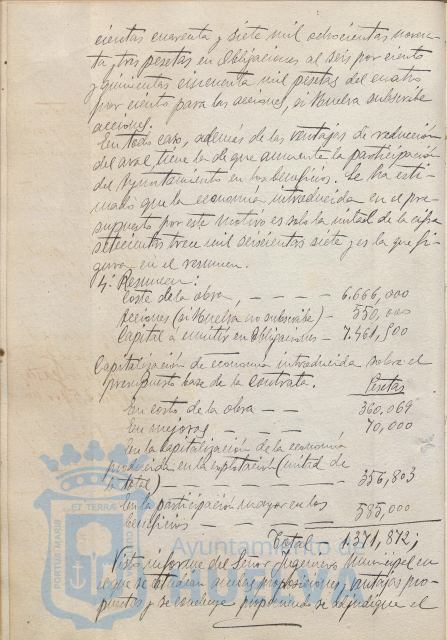 cientas cuarenta y siete mil ochocientas noven-
ta y tres pesetas en Obligaciones al seis por ciento
y quinientas cincuenta mil pesetas del cuatro
por ciento para las acciones, si Huelva subscribe
acciones.
En todo caso, además de las ventajas de reducción
del aval tiene la de que aumenta la participación
del Ayuntamiento en los beneficios. Se ha esti-
mado que la economía introducida en el pre-
supuesto por este motivo es solo la mitad de la cifra
setecientas trece mil seiscientas siete y es la que fi-
gura en el resumen.
4º Resumen:
Coste de la obra, - - - - 6.666,000
Acciones (si Huelva no subscribe) - 550,000
Capital á emitir en Obligaciones - 7.461,500
Capitalización de economía introducida sobre el
presupuesto base de la contrata. Pesetas
En costo de la obra - - 360,069
En mejoras - - 70,000
En la capitalización de la economía
producida en la explotación (mitad de
la total) - - - - 356,803
En la participación mayor en los
beneficios - - - 585,000
Total - 1.371,872;
Visto informe del Señor Ingeniero Municipal en
el que se estudian dichas proposiciones, ventajas pro-
puestas y se concluye proponiendo se adjudique el
PORTUS MARIS
ET TERRÆ
Ayuntamiento de
HUELVA